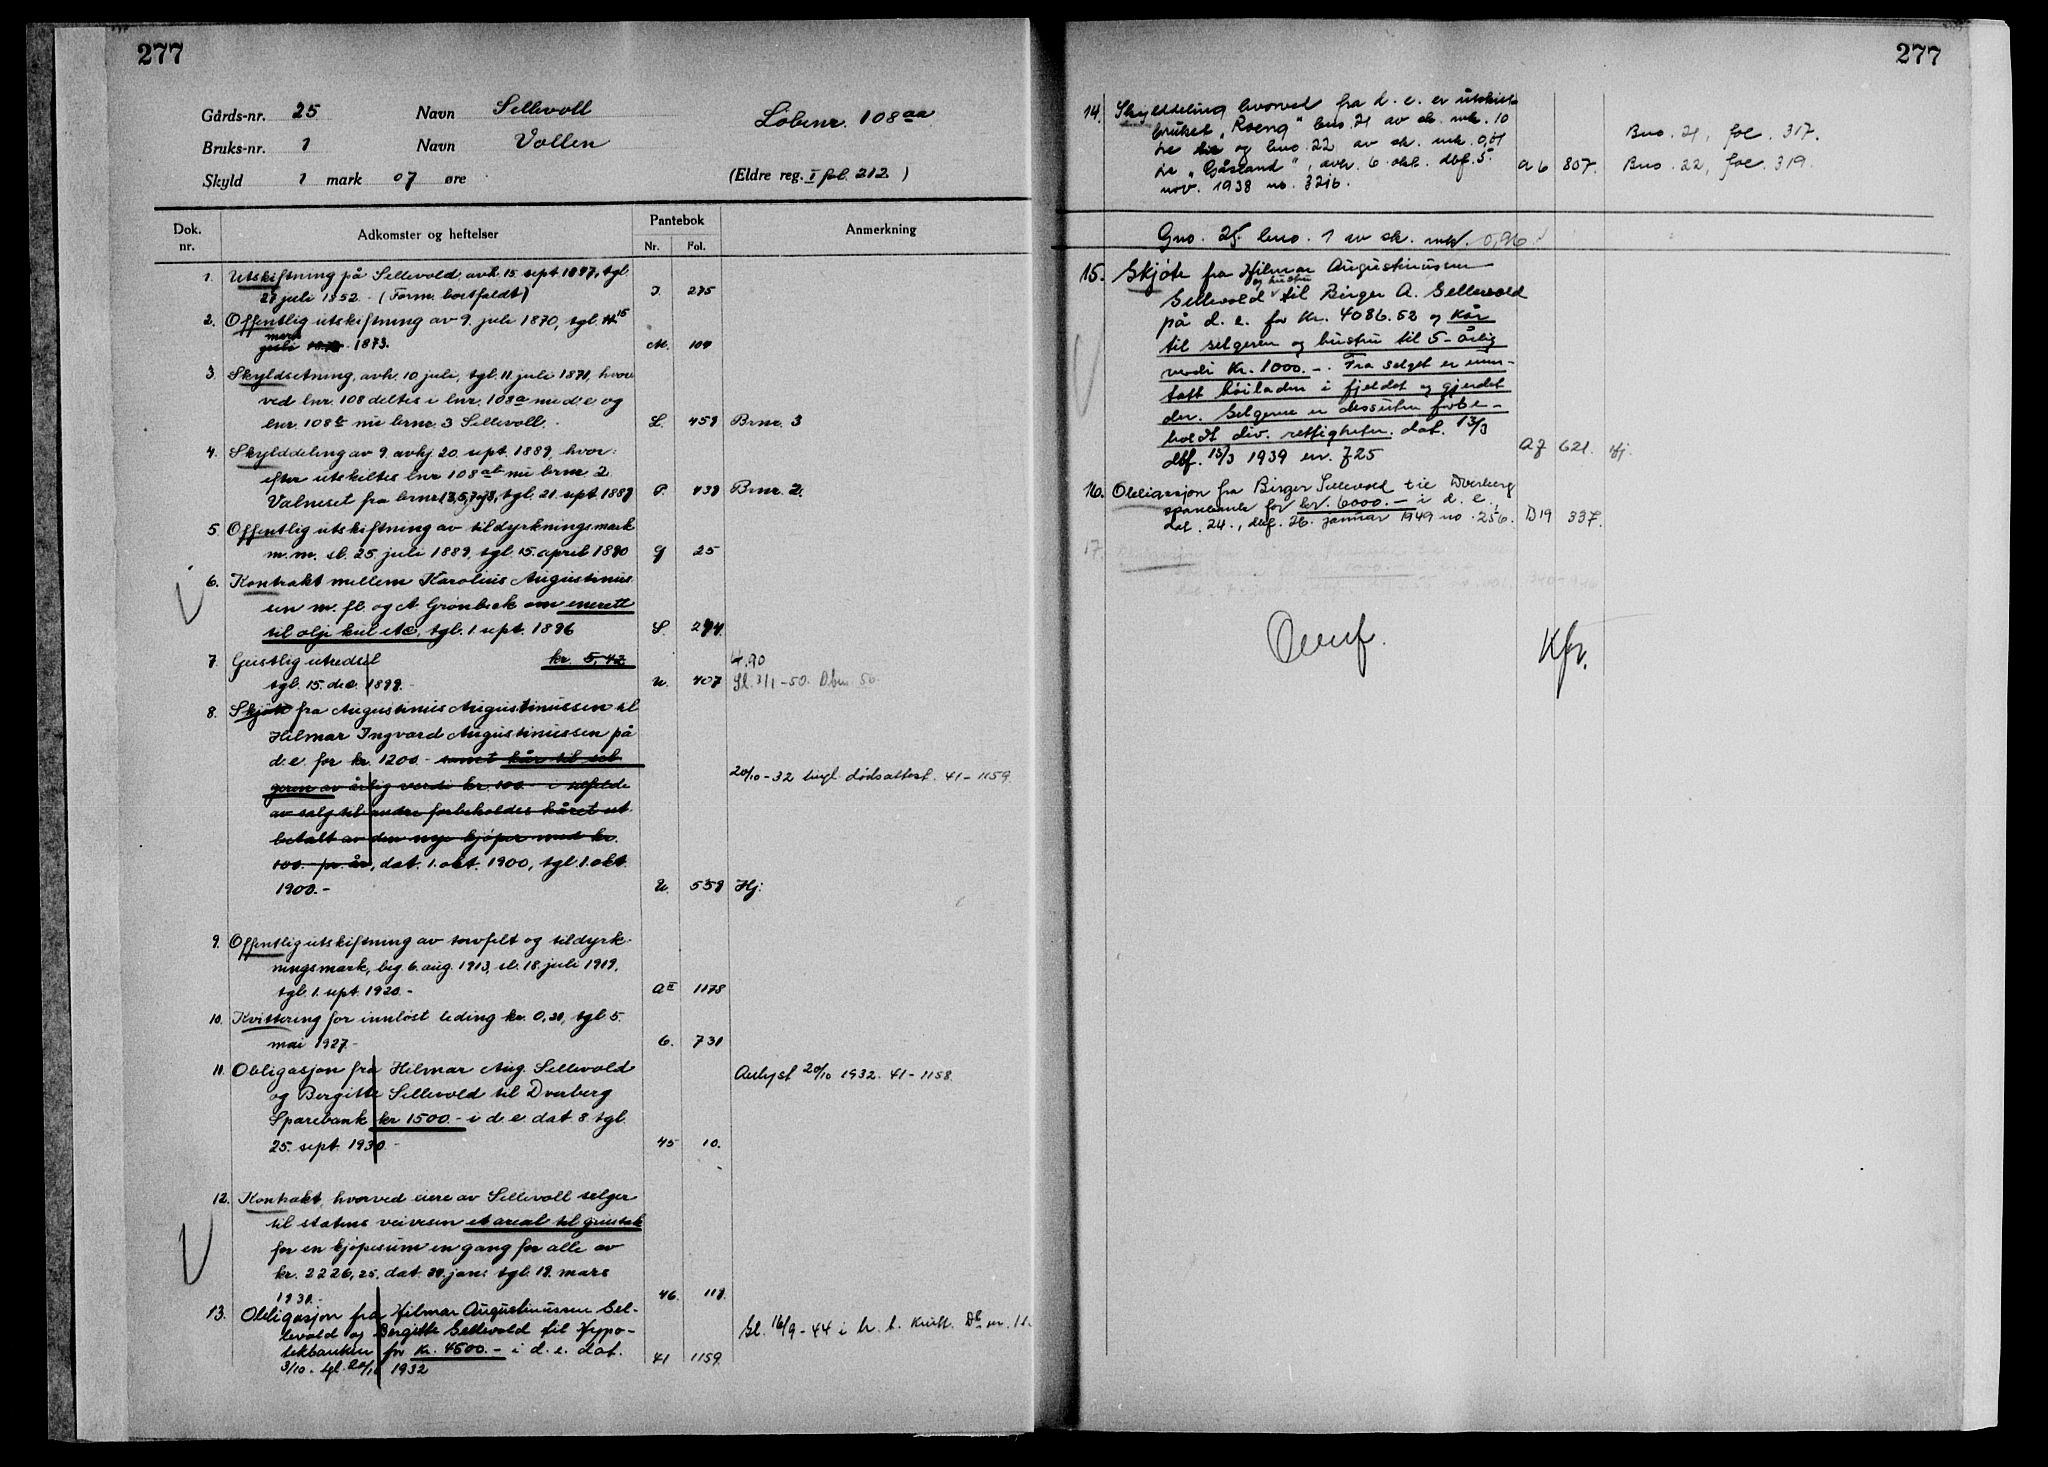 277
Gårds-nr. 25 Navn Sellevoll
Løbenr. 108aa
Bruks-nr. 1 Navn Vollen
Skyld 1 mark 07 øre
(Eldre reg. I fol. 212.)
Dok. nr.
Adkomster og heftelser
Pantebok
Nr. Fol.
Anmerkning
1. Utskiftning på Sellevold, avh. 15. sept. 1847, tgl.
27 juli 1852. (Form. bortfaldt) I. 275
2. Offentlig utskiftning av 9. juli 1870, tgl. 15
mars
juli 1873. M. 104
3. Skyldsetning, avh. 10. juli, tgl. 11. juli 1871, hvor
ved lnr. 108 deltes i lnr. 108a nu d.e. og
lnr. 108b nu brnr. 3 Sellevoll. L. 459 Brnr. 3
4. Skylddeling av 9. avhj. 20. sept. 1889, hvor:
efter utskiltes lnr 108ab nu brnr. 2
Valneset fra brnr 1,3,5,7 og 8, tgl. 21. sept. 1889 P. 439 Brnr. 2.
5. Offentlig utskiftning av tildyrkningsmark
m.m. sl. 25. juli 1889, tgl. 15. april 1890 Q 25
6. Kontrakt mellem Karolius Augustinus
sen m. fl. og A. Grønbeck om enerett
til olje kul etc, tgl. 1. sept. 1896 S. 294.
7. Geistlig utredsel kr. 5,42 4.90
tgl. 15. dec. 1899. U. 407 Sl. 3/1-50. Dbnr. 50
8. Skjøte fra Augustinus Augustinussen til
Hilmar Ingvard Augustinussen på
d.e. for kr. 1200.- samt kår til sel
geren av årlig verdi kr. 100.- i tilfelde
20/10-32 tingl. dødsattest. 41-1159.
av salg til andre forbeholdes kåret ut
betalt av den nye kjøper med kr.
100.- pr år, dat. 1. okt. 1900, tgl. 1. okt.
1900.- U. 559 Hj:
9. Offentlig utskiftning av torvfelt og tildyrk-
ningsmark, beg. 6. aug. 1913, sl. 18. juli 1919,
tgl. 1. sept. 1920.- AII 1178
10. Kvittering for innløst leding kr. 0,20, tgl. 5.
mai 1927.- 6. 731
11. Obligasjon fra Hilmar Aug. Sellevold
Avlyst 20/10 1932. 41-1158.
og Bergitte Sellevold til Dverberg
Sparebank kr 1500.- i d.e. dat 8. tgl.
25. sept. 1930.- 45 10.
12. Kontrakt, hvorved eiere av Sellevoll selger
til statens veivesen et areal til grustak
for en kjøpesum en gang for alle av
kr. 2226,25, dat. 29. jan: tgl. 19. mars
1930.- 46. 119.
13. Obligasjon fra Hilmar Augustinussen Sel-
levold og Bergitte Sellevold til Hypo-
Sl. 16/9-44 i h. t. kvitt. Db nr. 11.
tekbanken for kr. 4500.- i d.e. dat.
3/10. tgl. 20/10 1932 41 1159.
277
14. Skylddeling hvorved fra d.e. er utskilt
bruket „Roeng" bno. 21 av sk. mk. 10
Bno. 21, fol. 317.
øre og bno. 22 av sk. mk. 0,01
øre „Gåsland", avh. 6. okt. dbf. 5. A6 807. Bno. 22, fol. 319.
nov. 1938 no. 3216.
Gno. 25. bno. 1 av sk. mk. 0,96
15. Skjøte fra Hilmar Augustinussen
og hustru
Sellevold til Birger A. Sellevold
på d.e. for kr. 4086.52 og kår
til selgeren og hustru til 5-årlig
verdi kr. 1000.-. Fra salget er unn-
tatt høiladen i fjeldet og gjerdet
der. Selgerne er dessuten forbe-
holdt div. rettigheter. dat. 13/3
dbf. 15/3 1939 nr. 725 A7 621. Hj.
16. Obligasjon fra Birger Sellevold til Dverberg
sparebank for kr. 6000.- i d.e.
dat. 24., dbf. 26. januar 1949 no. 256. D19 337.
17.
Overf. Kfr.